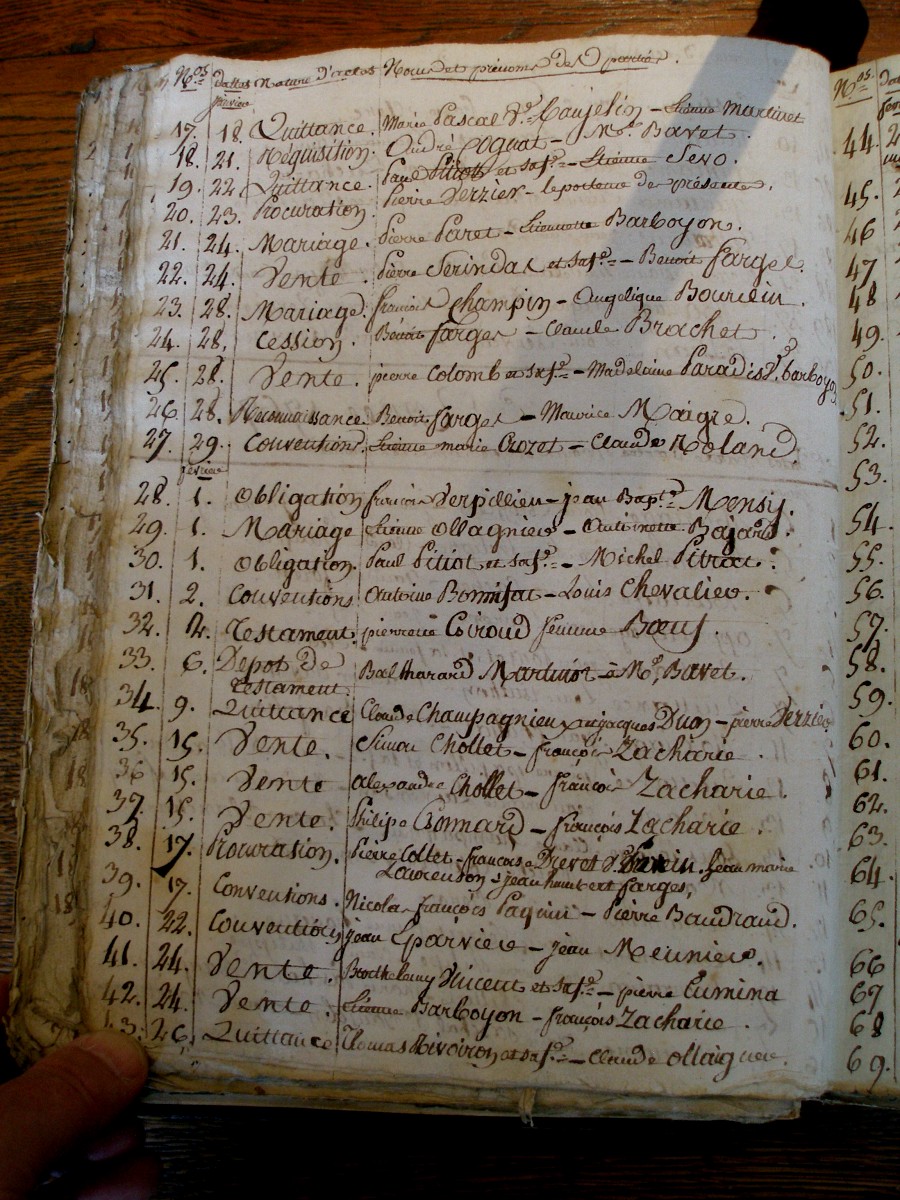 Nos dattes Nature d'actes Noms et prénoms des parties.
janvier
17. 18. Quittance. Marie Pascal Ve. - Etienne Martinet
18. 21. Réquisition. André Coquat - Me. Bavet.
19. 22. Quittance. Paul Pitiot et sa fe. - Etienne Sevo.
20. 23. Procuration. Pierre Verzier - le porteur des présentes.
21. 24. Mariage. Pierre Peret - Etiennette Barboyon.
22. 24. Vente. Pierre Serindat et sa fe. - Benoit farget.
23. 28. Mariage. françois Champin - Angélique Bourdin.
24. 28. Cession. Benoit farget - Claude Brachet.
25. 28. Vente. pierre Colomb et sa fe. - Madelaine Paradis Ve. barboyon
26. 28. Reconnaissance Benoit farget - Maurice Maigre.
27. 29. Convention. Etienne marie Crozet - Claude Roland.
fevrier
28. 1. Obligation françois Verpillieu - jean Bapte. Mensy.
29. 1. Mariage Etienne Ollagnier - Antoinette Bajard.
30. 1. Obligation. Paul Pitiot et sa fe. - Michel Pitrat.
31. 2. Conventions Antoine Bonnifat - Louis Chevalier.
32. 2. Testament. pierrette Giroud femme Bœuf.
33. 6. Depot de Balthazard Martinot à Me. Bavet.
testament.
34. 9. Quittance Claude Champagnieu jacques Duon - pierre Verzier
35. 15. Vente. Simon Chollet - françois Zacharie.
36 15. Vente Alexandre Chollet - françois Zacharie.
37. 15. Vente. Philipe Bonnard - françois Zacharie.
38. 17. Procuration. Pierre Collet - françois Drevet jean marie
Laurenson jean farges.
39. 17. Conventions. Nicolas françois Paquin - Pierre Baudraud.
40. 22. Convention jean Eparvier - jean Meunier.
41. 24. Vente. Barthelemy Vincent et sa fe. - pierre Cumina
42. 24. Vente. Etienne Barboyon - françois Zacharie.
43. 26. Quittance Thomas Rivoiron et sa fe. - Claude Ollagnier.
Nos.
44.
45.
46
47
48
49.
50.
51.
52.
53.
54.
55.
56.
57.
58.
59.
60.
61.
62.
63.
64.
65.
66
67
68
69.